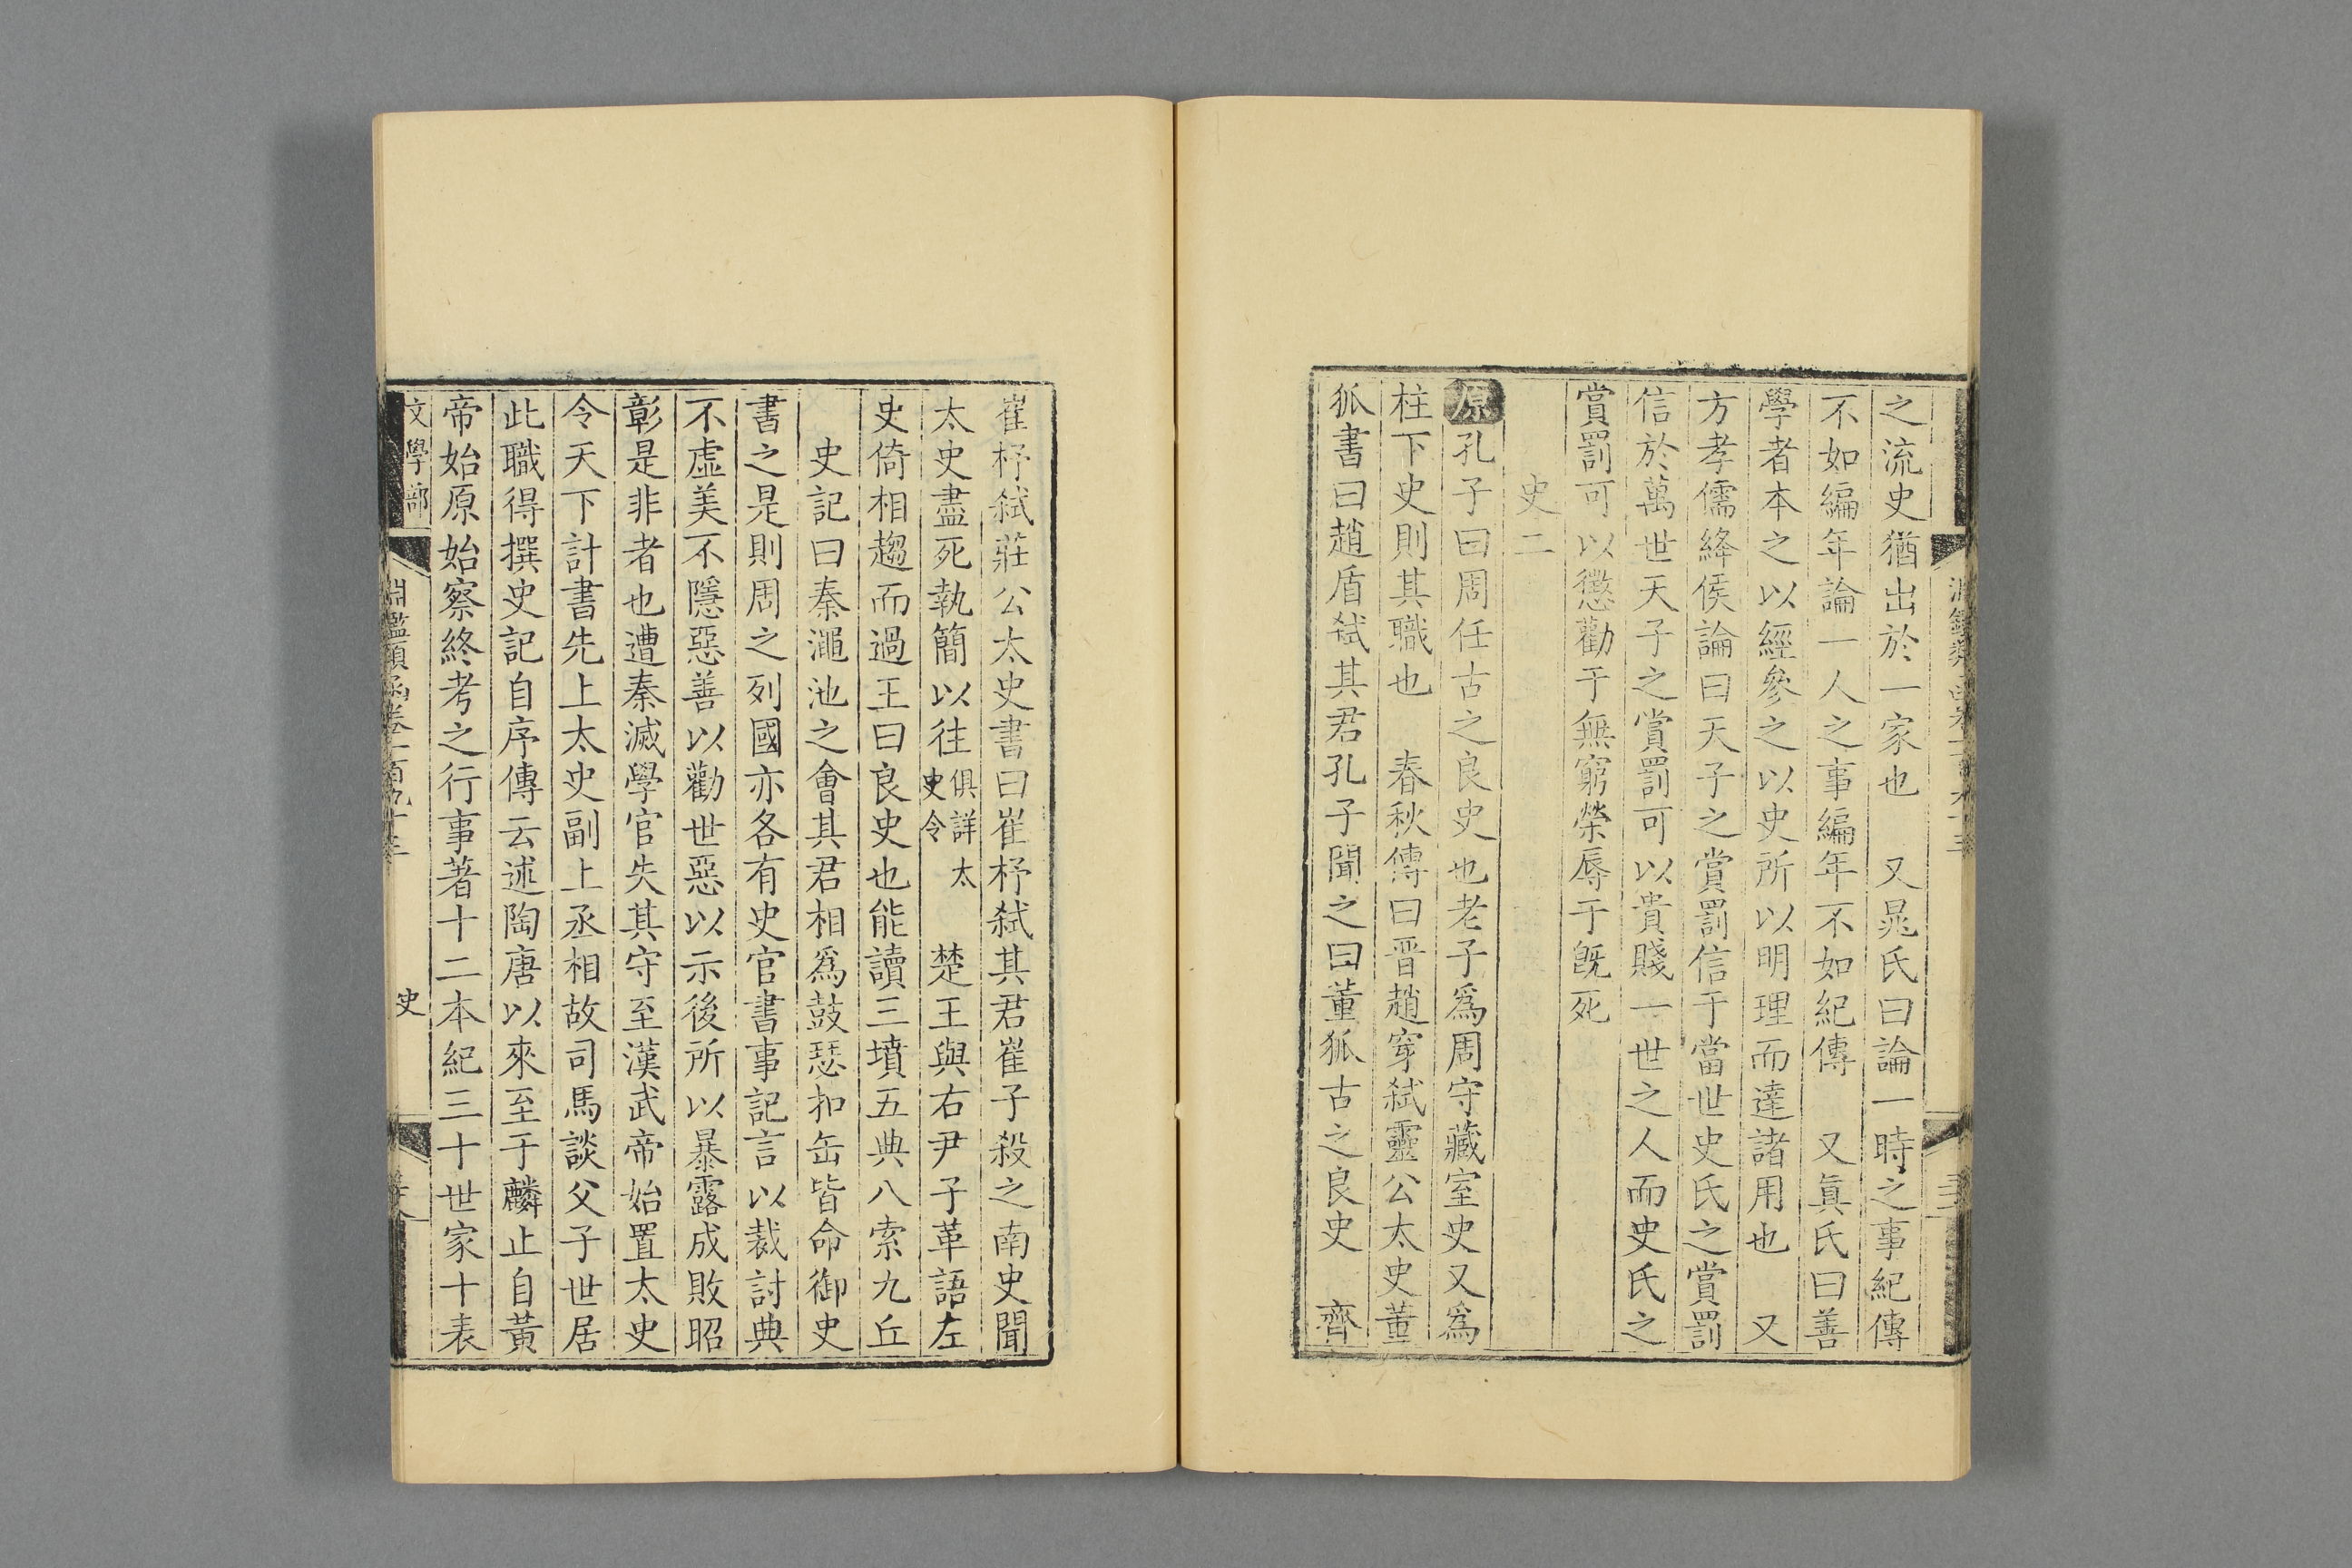 之流史猶出於一家也　又晁氏曰論一時之事紀傳
不如編年論一人之事編年不如紀傳　又眞氏曰善
學者本之以經參之以史所以明理而達諸用也　又
方孝儒絳侯論曰天子之賞罰信于當世史氏之賞罰
信於萬世天子之賞罰可以貴賤一世之人而史氏之
賞罰可以懲勸于無窮榮辱于旣死
史二
原孔子曰周任古之良史也老子爲周守藏室史又爲
柱下史則其職也　春秋傳曰晉趙穿弑靈公太史董
狐書曰趙盾弑其君孔子聞之曰董狐古之良史　齊
崔杼弑莊公太史書曰崔杼弑其君崔子殺之南史聞
太史盡死執簡以往俱詳太史令　楚王與右尹子革語左
史倚相趨而過王曰良史也能讀三墳五典八索九丘
史記曰秦澠池之會其君相爲鼓瑟扣缶皆命御史
書之是則周之列國亦各有史官書事記言以裁討典
不虛美不隱惡善以勸世惡以示後所以暴露成敗昭
彰是非者也遭秦滅學官失其守至漢武帝始置太史
令天下計書先上太史副上丞相故司馬談父子世居
此職得撰史記自序傳云述陶唐以來至于麟止自黃
帝始原始察終考之行事著十二本紀三十世家十表
文學部
淵鑑類函卷一百九十三
史